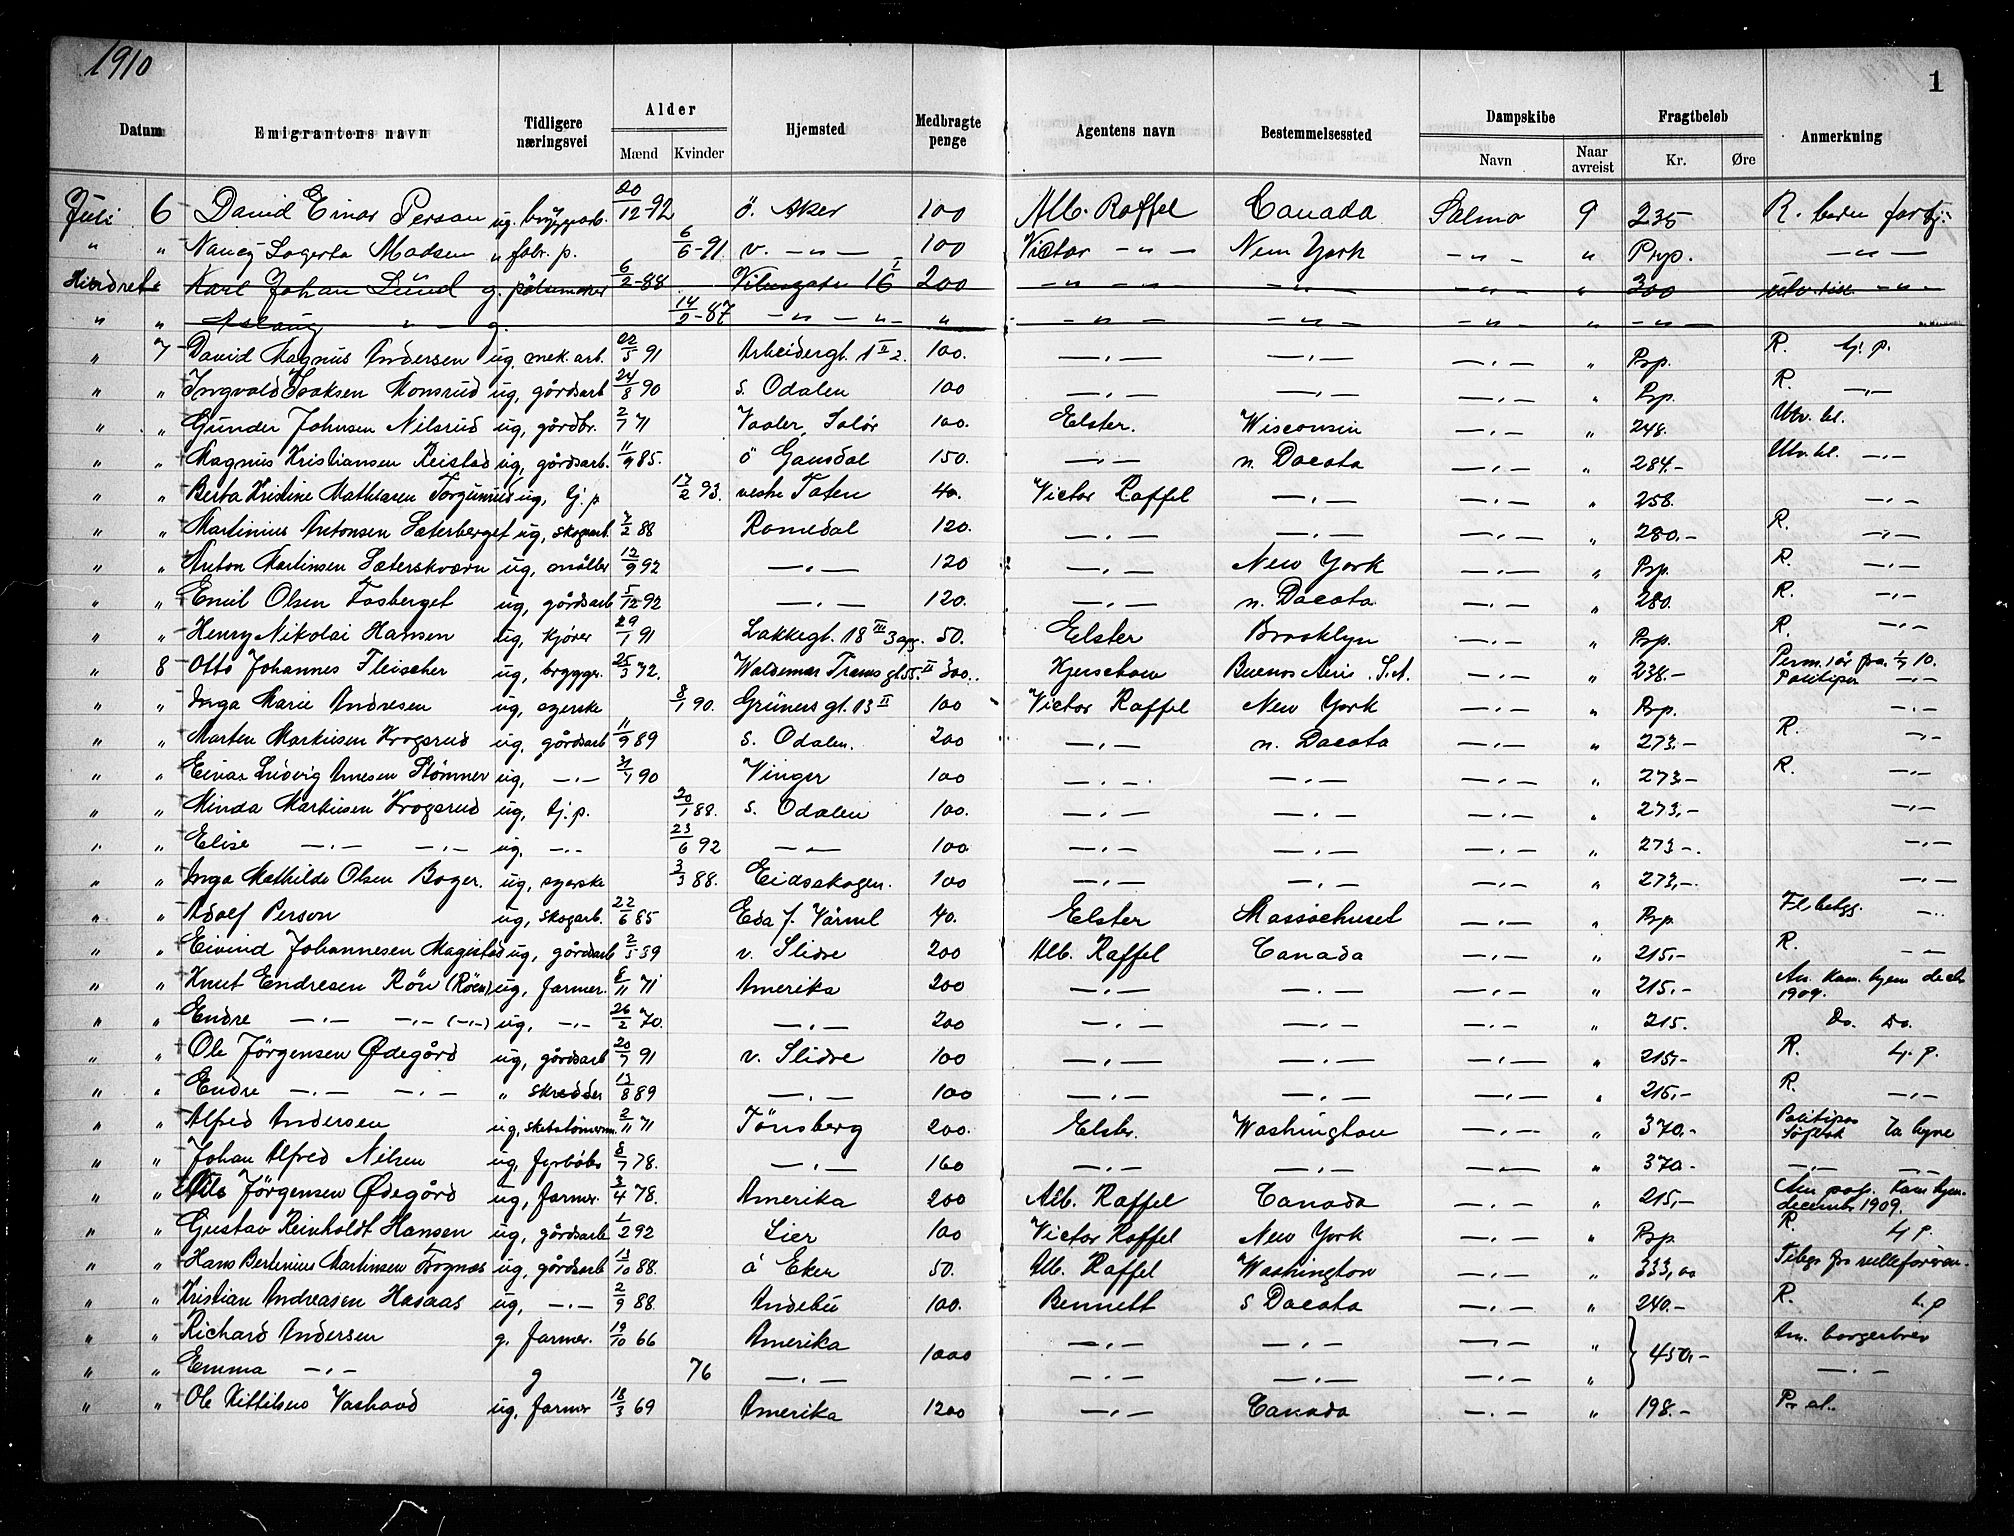 1910
1
Datum Emigrantens navn Tidligere næringsvei Alder Mænd Kvinder Hjemsted Medbragte penge Agentens navn Bestemmelsessted Dampskibe Navn Naar avreist Fragtbeløb Kr. Øre Anmerkning
Juli 6 David Einar Person ug. bryggarb. 20/12-92 ö. Aker 100 Alb. Raffel Canada Salmo 9 235 R.
" " Nancy Lagerta Madsen " fabr. p. 6/6-91 v. -"- 100 Victor -"- New York -"- " Prp. -"-
Hindret " Karl Johan Lund g. pølsemaker 6/2-88 Vibesgaten 16 I 200 -"- -"- -"- " 300 -"-
" " Aslaug -"- g. 14/2-87 -"- -"- " -"- -"- -"- " -"-
" 7 David Magnus Andersen ug. mek. arb. 22/5 91 Arbeidergt. 1 II 2. 100. -"- -"- -"- " Prp. R. tj. p.
" " Ingvald Isaksen Monsrud ug, gårdsarb 24/8 90 s. Odalen 100 -"- -"- -"- " Prp. R. -"-
" " Gunder Johnsen Nilsrud ug, gårdbr. 2/7 71 Vaaler, Solør 100. Elster. Wisconsin -"- " 248. Utv. bl.
" " Magnus Kristiansen Reistad ug, gårdsarb. 11/9 85. ö Gausdal 150. -"- n. Dacota -"- " 284.- Utv. bl. -"-
" " Berta Kristine Mathiasen Torgunrud ug, tj. p 17/2 93. vestre Toten 40. Victor Raffel -"- -"- " 258. -"-
" " Martinius Antonsen Sæterberget ug, skogarb. 7/2 88 Romedal 120. -"- -"- -"- " 280.- R. -"-
" " Anton Martinsen Sæterskværn ug, møller 12/9 92 -"- 120 -"- New York -"- " Prp. R. -"-
" " Emil Olsen Fosberget ug, gårdsarb 5/12-92 -"- 120. -"- n. Dacota -"- " 280. R. -"-
" " Henry Nikolai Hansen ug, kjører 29/1 91 Lakkegt. 18 III 3 opg. 50. Elster Brooklyn -"- " Prp. R. -"-
" 8 Otto Johannes Fleischer ug, bryggr. 25/3 72. Waldemar Tranes gt. 55. II 300.. Hjerschow Buenos Airis. S.A. -"- " 238.- Perm. 1 år fra 1/7 10. Politipas -"-
" " Inga Marie Andresen ug, syerske 8/1 90. Grüners gt. 13 II 100 Victor Raffel New York -"- " Prp. -"-
" " Marten Markusen Krogsrud ug, gårdsarb 11/9 89 s. Odalen. 200 -"- n. Dacota -"- " 273.- R. -"-
" " Einar Ludvig Arnesen Stømner ug, -"- 31/1 90 Vinger 100 -"- -"- -"- " 273- R. -"-
" " Minda Markusen Krogsrud ug, tj. p. 20/1 88. s. Odalen 100. -"- -"- -"- " 273,- -"-
" " Elise -"- -"- ug, -"- 23/6 92 -"- 100 -"- -"- -"- " 273-. -"-
" " Inga Mathilde Olsen Boger. ug, syerske 3/3 88. Eidsskogen. 100 -"- -"- -"- " 273,- -"-
" " Adolf Person ug, skogarb. 22/6 85 Eda s. Värml 40. Elster Massachuset -"- " Prp. Fl betyg. -"-
" " Eivind Johannesen Magistad ug, gårdsarb 2/5 89 v. Slidre 200 Alb. Raffel Canada -"- " 215,- R. -"-
" " Knut Endresen Rön (Røen) ug, farmer. 8/11 71 Amerika 200 -"- -"- -"- " 215.- Am. Kom hjem decbr 1909.
" " Endre -"- -"- (-"-) ug, -"- 26/2 70. -"- 200 -"- -"- -"- " 215. Do. Do.
" " Ole Jörgensen Ødegård ug, gårdsarb 20/7 91 v. Slidre 100 -"- -"- -"- " 215,- R. tj. p.
" " Endre -"- -"- " skredder 13/8 89 -"- 100 -"- -"- -"- " 215,- R. -"-
" " Alfred Andersen ug, skibstømerm. 2/11 71 Tönsberg 200. Elster. Washington -"- " 370.- Politipas Søfbok Ta hyre
" " Johan Alfred Nilsen ug, fyrbøter 8/7 78. -"- 160 -"- -"- -"- " 370- -"- -"-
" " Nils Jörgensen Ødegård ug, farmer. 3/4 78. Amerika 200 Alb. Raffel Canada -"- " 215,- Am pas. Kom hjem december 1909.
" " Gustav Reinholdt Hansen ug, gårdsarb 1/2 92 Lier 100 Victor Raffel New York -"- " Prp. R. tj p.
" " Hans Bertinius Martinsen Fognæs ug, gårdsarb 13/10 88. ö Eker 50. Alb. Raffel Washington -"- " 333,00
" " Kristian Andreasen Hasaas ug, -"- 2/9 88 Andebu 100. Bennett s Dacota -"- " 240.- R. t. p
" " Richard Andersen g, farmer. 19/10 66 Amerika 1000 -"- -"- -"- " 450,- Am. borgerbrev
" " Emma -"- g 76 -"- -"- -"- -"- " -"-
" " Ole Kittilsen Vashovd ug, farmer 18/3 69 Amerika 1200 -"- Canada -"- " 198.-